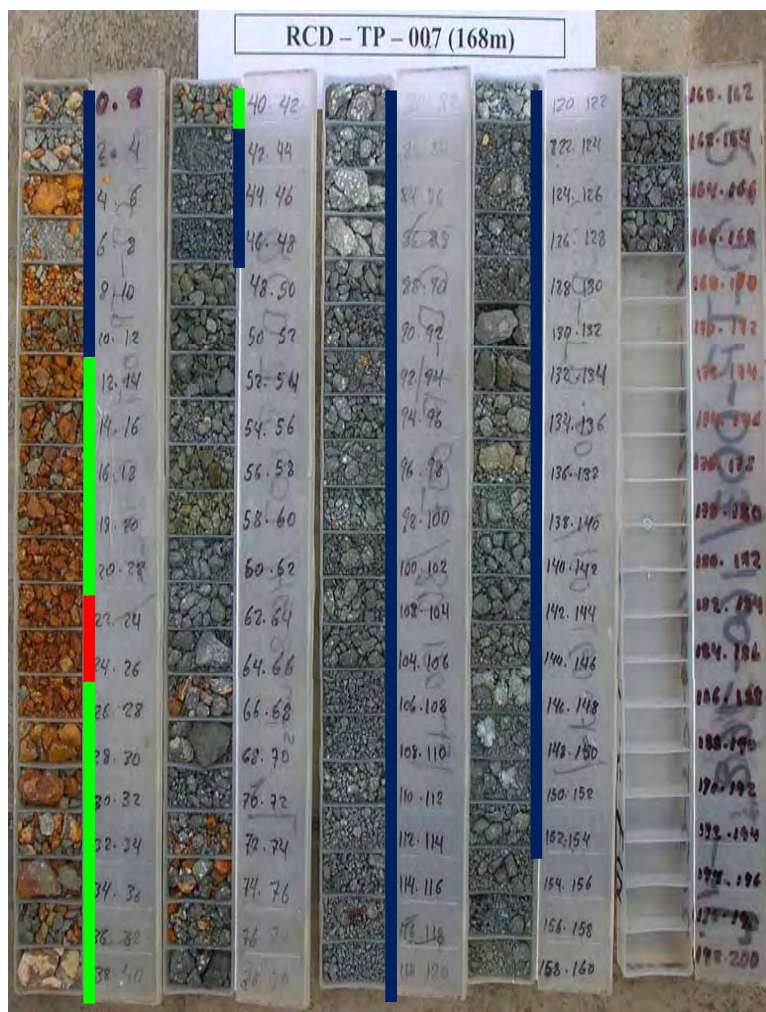 RCD – TP – 007 (168m)
0.2
2. 4
4. 6
6. 8
8. 10
10. 12
12. 14
14. 16
16. 18
18. 20
22. 24
24. 26
26. 28
28. 30
30. 32
32. 34
34. 36
36. 38
38. 40
40. 42
42. 44
44. 46
46. 48
48. 50
50. 52
52. 54
54. 56
56. 58
58. 60
60. 62
62. 64
64. 66
66. 68
68. 70
70. 72
72. 74
74. 76
88. 90
90. 92
92. 94
94. 96
96. 98
98. 100
100. 102
102. 104
104. 106
106. 108
108. 110
110. 112
112. 114
114. 116
116. 118
118 120
120. 122
122. 124
124. 126
126. 128
128. 130
130. 132
132. 134
134. 136
138. 140
140. 142
142. 144
146. 148
148. 150
150. 152
152. 154
154. 156
156. 158
158. 160
160. 162
162. 164
164. 166
166. 168
168. 170
170. 172
178. 180
180. 182
182. 184
184. 186
186. 188
188. 190
190. 192
192. 194
198. 200